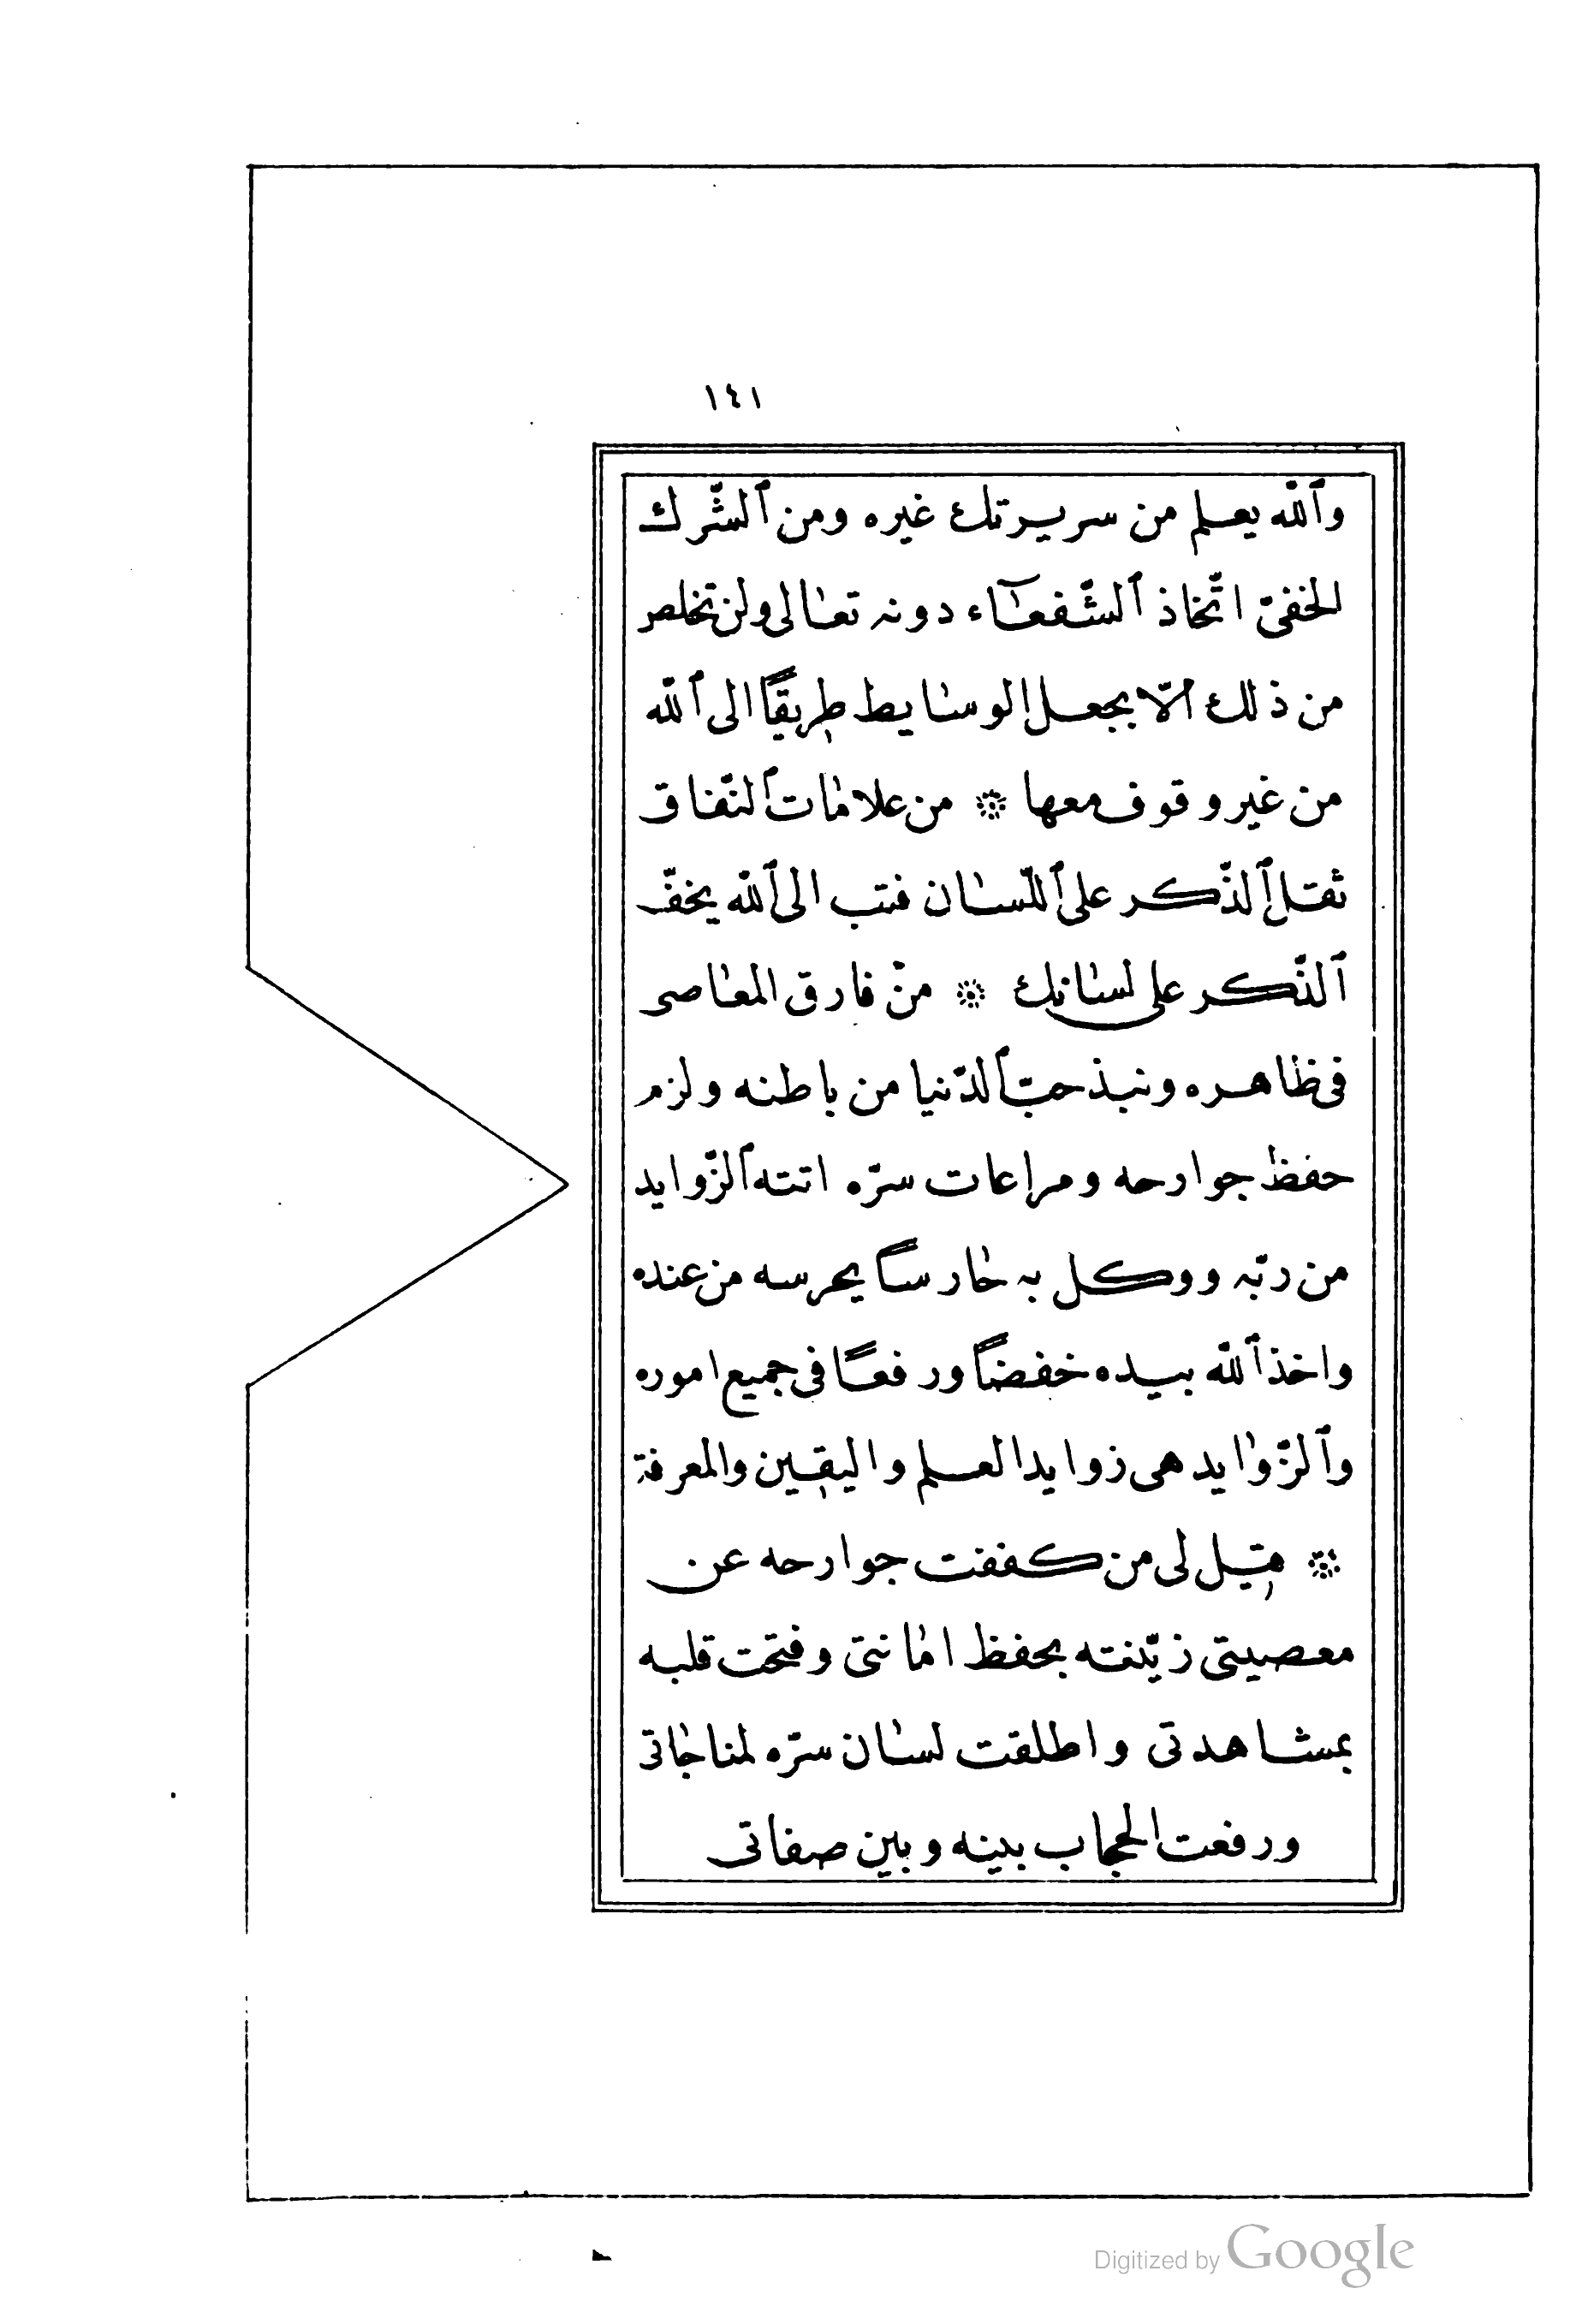 ١٤١
وٱللّه يعلم من سريرتك غيره ومن ٱلشّرك
الخفىّ اتّخاذ ٱلشّفعٰآء دونه تعٰالى ولن تخلص
من ذلك ٱلّا بجعل الوسٰايط طريقاً الى ٱللّه
من غير وقوف معها ۞ من علامٰات ٱلنّفاق
ثقل ٱلذّكر على ٱللّسٰان فتب الى ٱللّه يخفّ
ٱلذّكر على لسٰانك ۞ منْ فارق المعٰاصى
فى ظاهره ونبذ حبّ ٱلدّنيا من باطنه ولزم
حفظ جوارحه ومراعات سرّه اتته ٱلزّوايد
من ربّه ووكل به حٰارساً يحرسه من عنده
واخذ ٱللّه بيده خفضاً ورفعاً فى جميع اموره
وٱلزّوٰايد هى زوايد العلم واليقين والمعرفة
۞ قيل لى من كففت جوارحه عن
معصيتى زيّنته بحفظ امٰانتى وفتحت قلبه
بمشاهدتى واطلقت لسٰان سرّه لمناجٰاتى
ورفعت الحجاب بينه وبين صفاتى
Digitized by Google